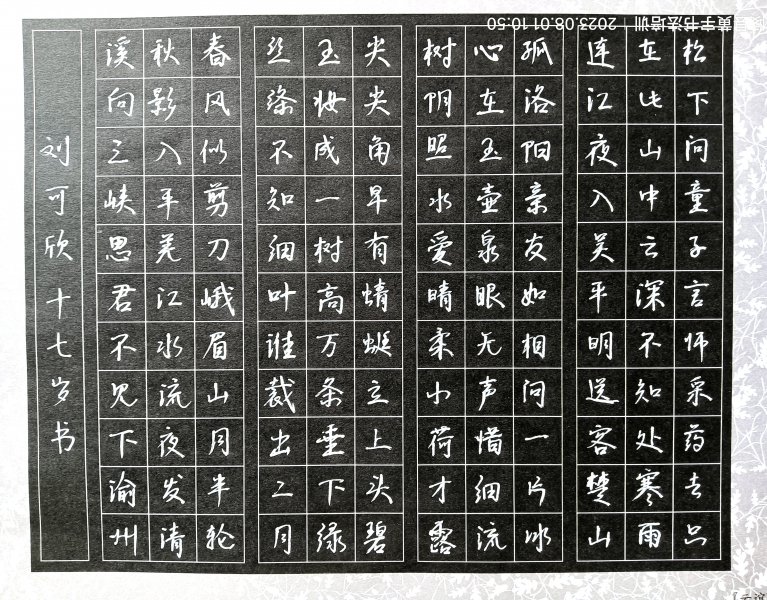 松下问童子言师采药去只
在此山中云深不知处寒雨
连江夜入吴平明送客楚山
孤洛阳亲友如相问一片冰
心在玉壶泉眼无声惜细流
树阴照水爱晴柔小荷才露
尖尖角早有蜻蜓立上头碧
玉妆成一树高万条垂下绿
丝绦不知细叶谁裁出二月
春风似剪刀峨眉山月半轮
秋影入平羌江水流夜发清
溪向三峡思君不见下渝州
刘可欣十七岁书
字书法培训 | 2023.08.01 10:50